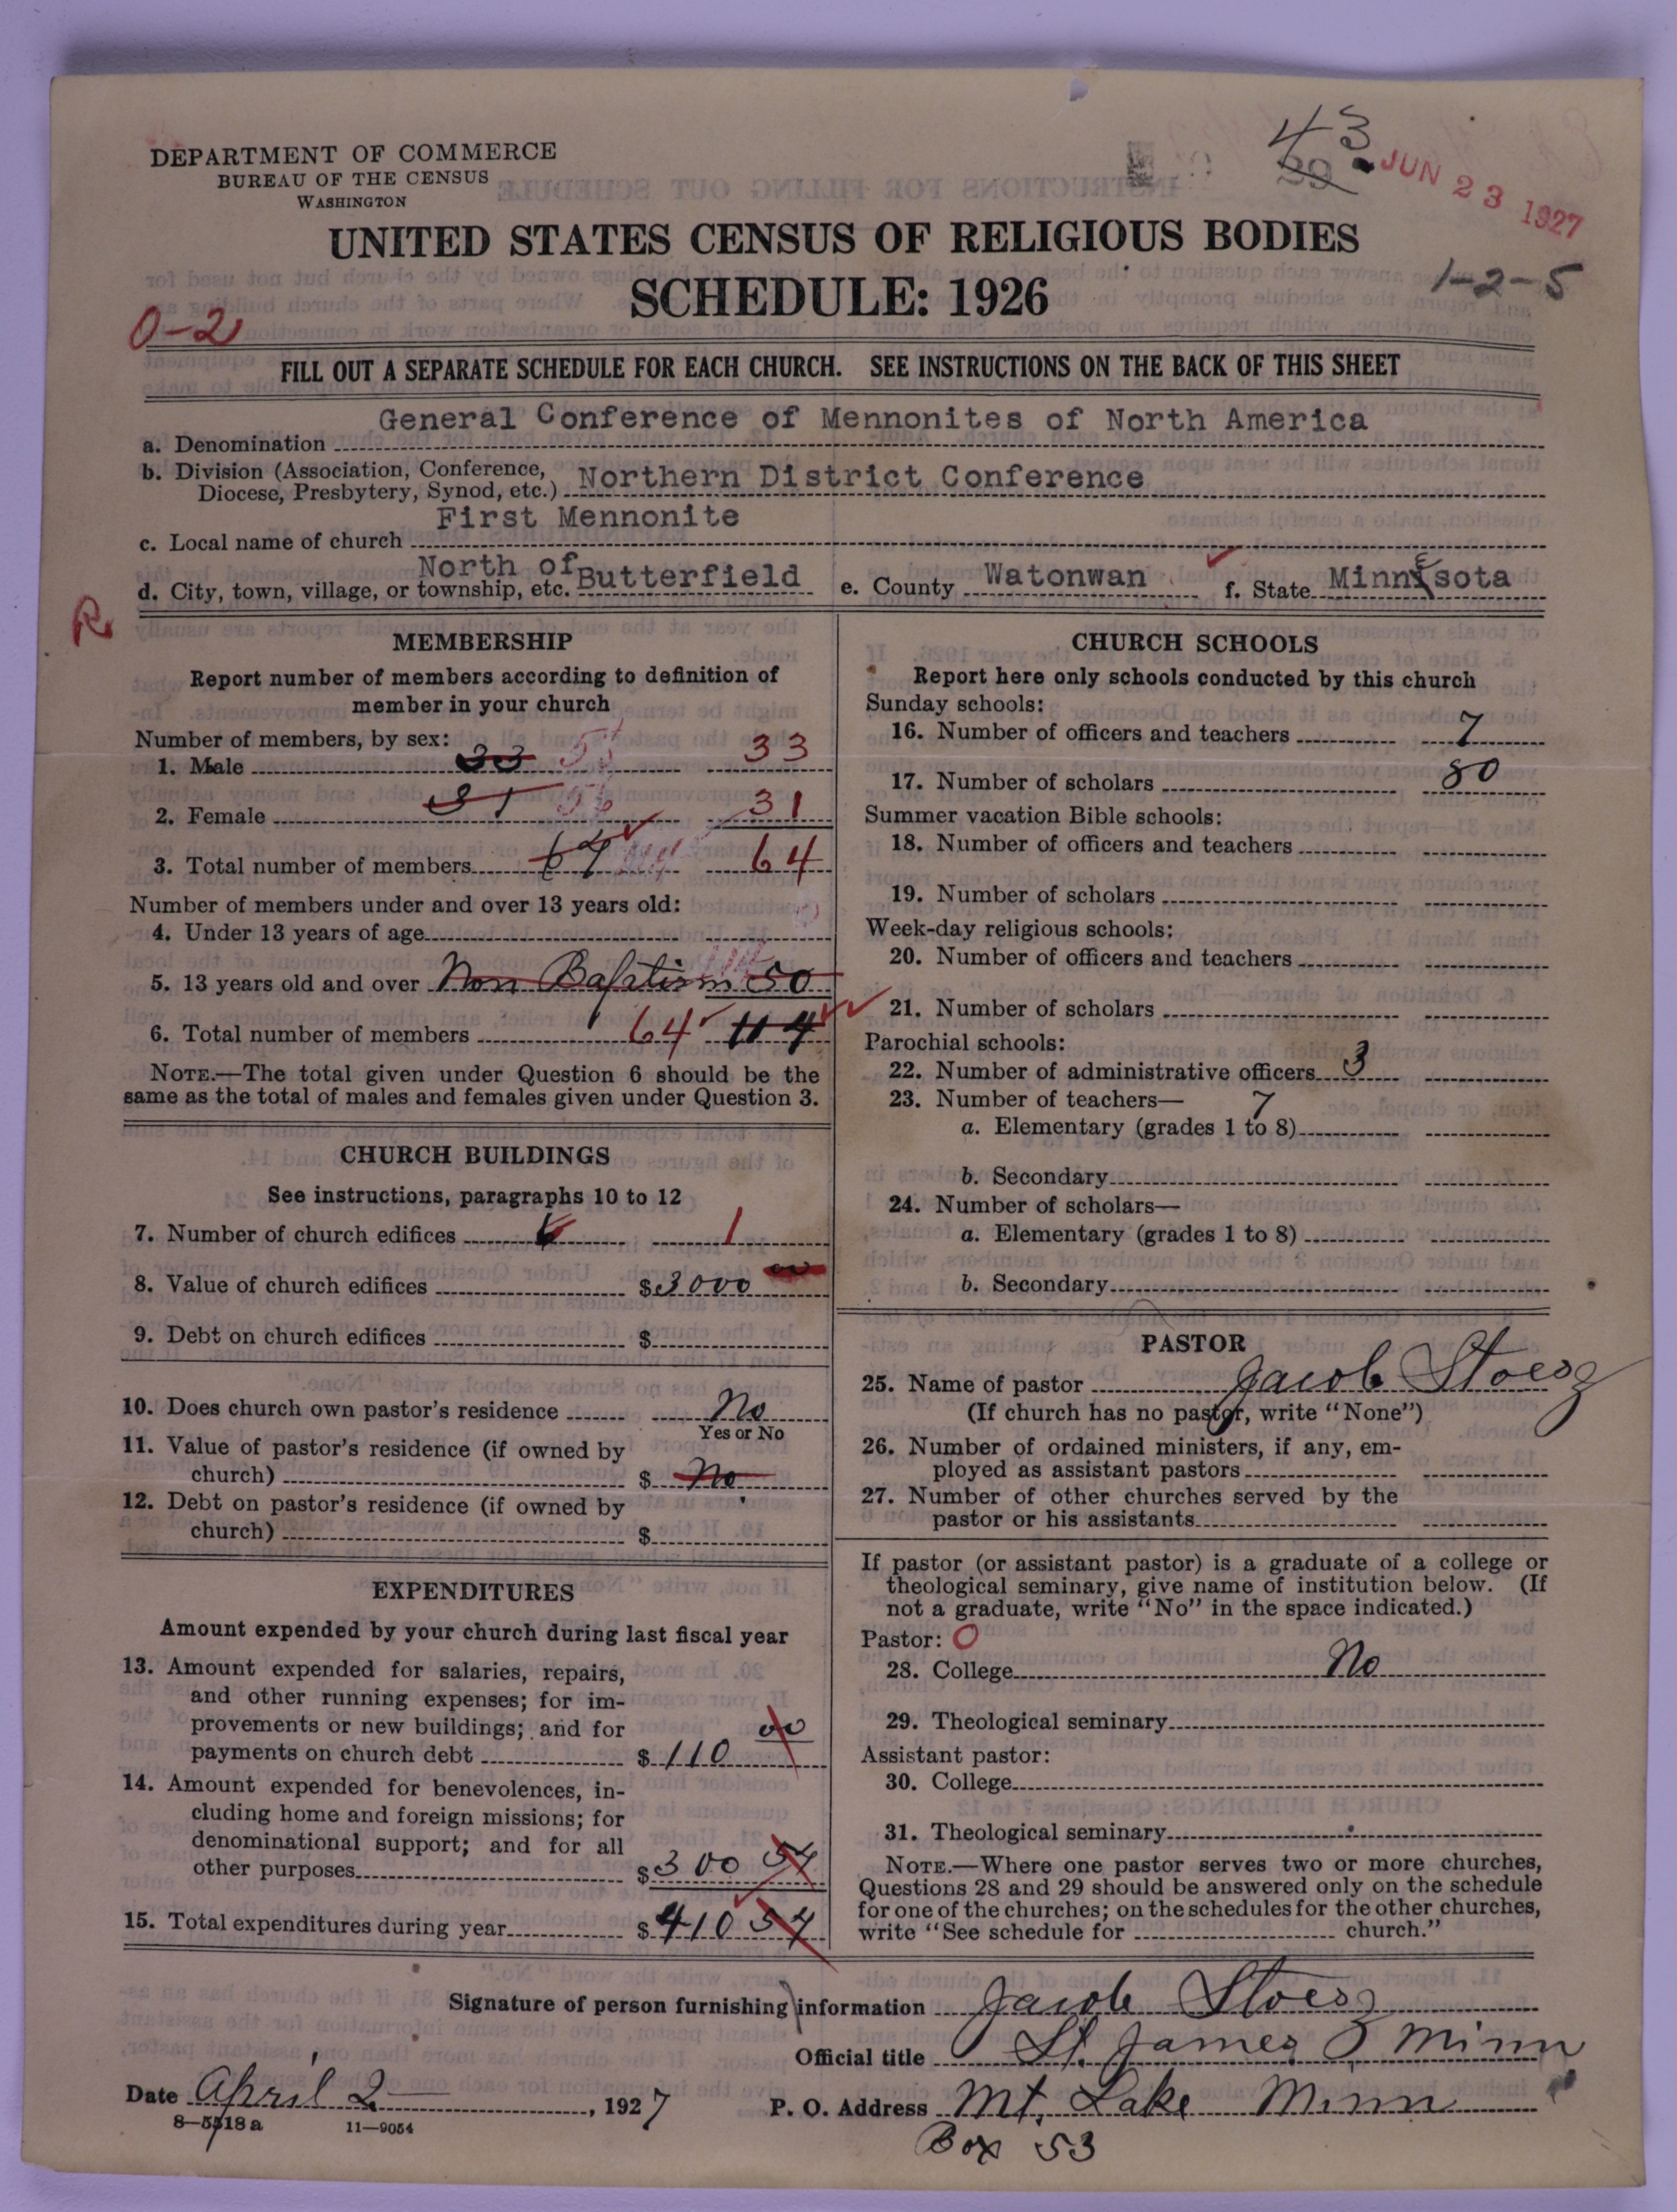 DEPARTMENT OF COMMERCE
BUREAU OF THE CENSUS
WASHINGTON
43
39
JUN 23 1927
UNITED STATES CENSUS OF RELIGIOUS BODIES
SCHEDULE: 1926
1-2-5
0-2
FILL OUT A SEPARATE SCHEDULE FOR EACH CHURCH. SEE INSTRUCTIONS ON THE BACK OF THIS SHEET
a. Denomination General Conference of Mennonites of North America
b. Division (Association, Conference,
Diocese, Presbytery, Synod, etc.) Northern District Conference
c. Local name of church First Mennonite
d. City, town, village, or township, etc. North of Butterfield e. County Watonwan f. State Minnesota
R
MEMBERSHIP
Report number of members according to definition of
member in your church
Number of members, by sex:
1. Male 33 33
2. Female 31 31
3. Total number of members 64 64
Number of members under and over 13 years old:
4. Under 13 years of age
5. 13 years old and over Non Baptism 50
6. Total number of members 64 114
NOTE.—The total given under Question 6 should be the
same as the total of males and females given under Question 3.
CHURCH BUILDINGS
See instructions, paragraphs 10 to 12
7. Number of church edifices 1
8. Value of church edifices $3000 00
9. Debt on church edifices $
10. Does church own pastor's residence No
Yes or No
11. Value of pastor's residence (if owned by
church) $ No
12. Debt on pastor's residence (if owned by
church) $
EXPENDITURES
Amount expended by your church during last fiscal year
13. Amount expended for salaries, repairs,
and other running expenses; for im-
provements or new buildings; and for
payments on church debt $110 00
14. Amount expended for benevolences, in-
cluding home and foreign missions; for
denominational support; and for all
other purposes $300 54
15. Total expenditures during year $410 54
CHURCH SCHOOLS
Report here only schools conducted by this church
Sunday schools:
16. Number of officers and teachers 7
17. Number of scholars 80
Summer vacation Bible schools:
18. Number of officers and teachers
19. Number of scholars
Week-day religious schools:
20. Number of officers and teachers
21. Number of scholars
Parochial schools:
22. Number of administrative officers 3
23. Number of teachers—
a. Elementary (grades 1 to 8) 7
b. Secondary
24. Number of scholars—
a. Elementary (grades 1 to 8)
b. Secondary
PASTOR
25. Name of pastor Jacob Stoesz
(If church has no pastor, write "None")
26. Number of ordained ministers, if any, em-
ployed as assistant pastors
27. Number of other churches served by the
pastor or his assistants
If pastor (or assistant pastor) is a graduate of a college or
theological seminary, give name of institution below. (If
not a graduate, write "No" in the space indicated.)
Pastor: O
28. College No
29. Theological seminary
Assistant pastor:
30. College
31. Theological seminary
NOTE.—Where one pastor serves two or more churches,
Questions 28 and 29 should be answered only on the schedule
for one of the churches; on the schedules for the other churches,
write "See schedule for church."
Signature of person furnishing information Jacob Stoesz
Official title St. James Minn
Date April 2 , 1927 P. O. Address Mt. Lake Minn
8-5518 a 11-9054
Box 53